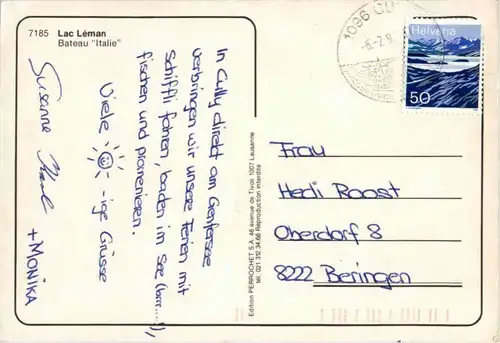 7185 Lac Léman
Bateau "Italie"
In Cully direkt am Genfersee
verbringen wir unsere Ferien mit
Schiffli fahren, baden im See (brrr....!),
fischen und plamenieren.
Viele
-ige Grüsse
Susanne
+ MONIKA
Edition PERROCHET S.A. 46 avenue de Tivoli 1007 Lausanne
tél. 021 312 34 66 Reproduction interdite
1096 CU
Helvetia
50
Frau
Hedi Roost
Oberdorf 8
8222 Beringen